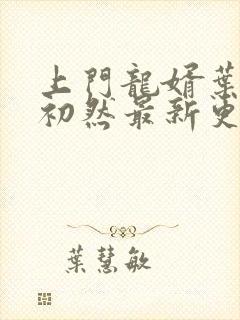 上門龍婿葉
初然最新更
葉慧敏